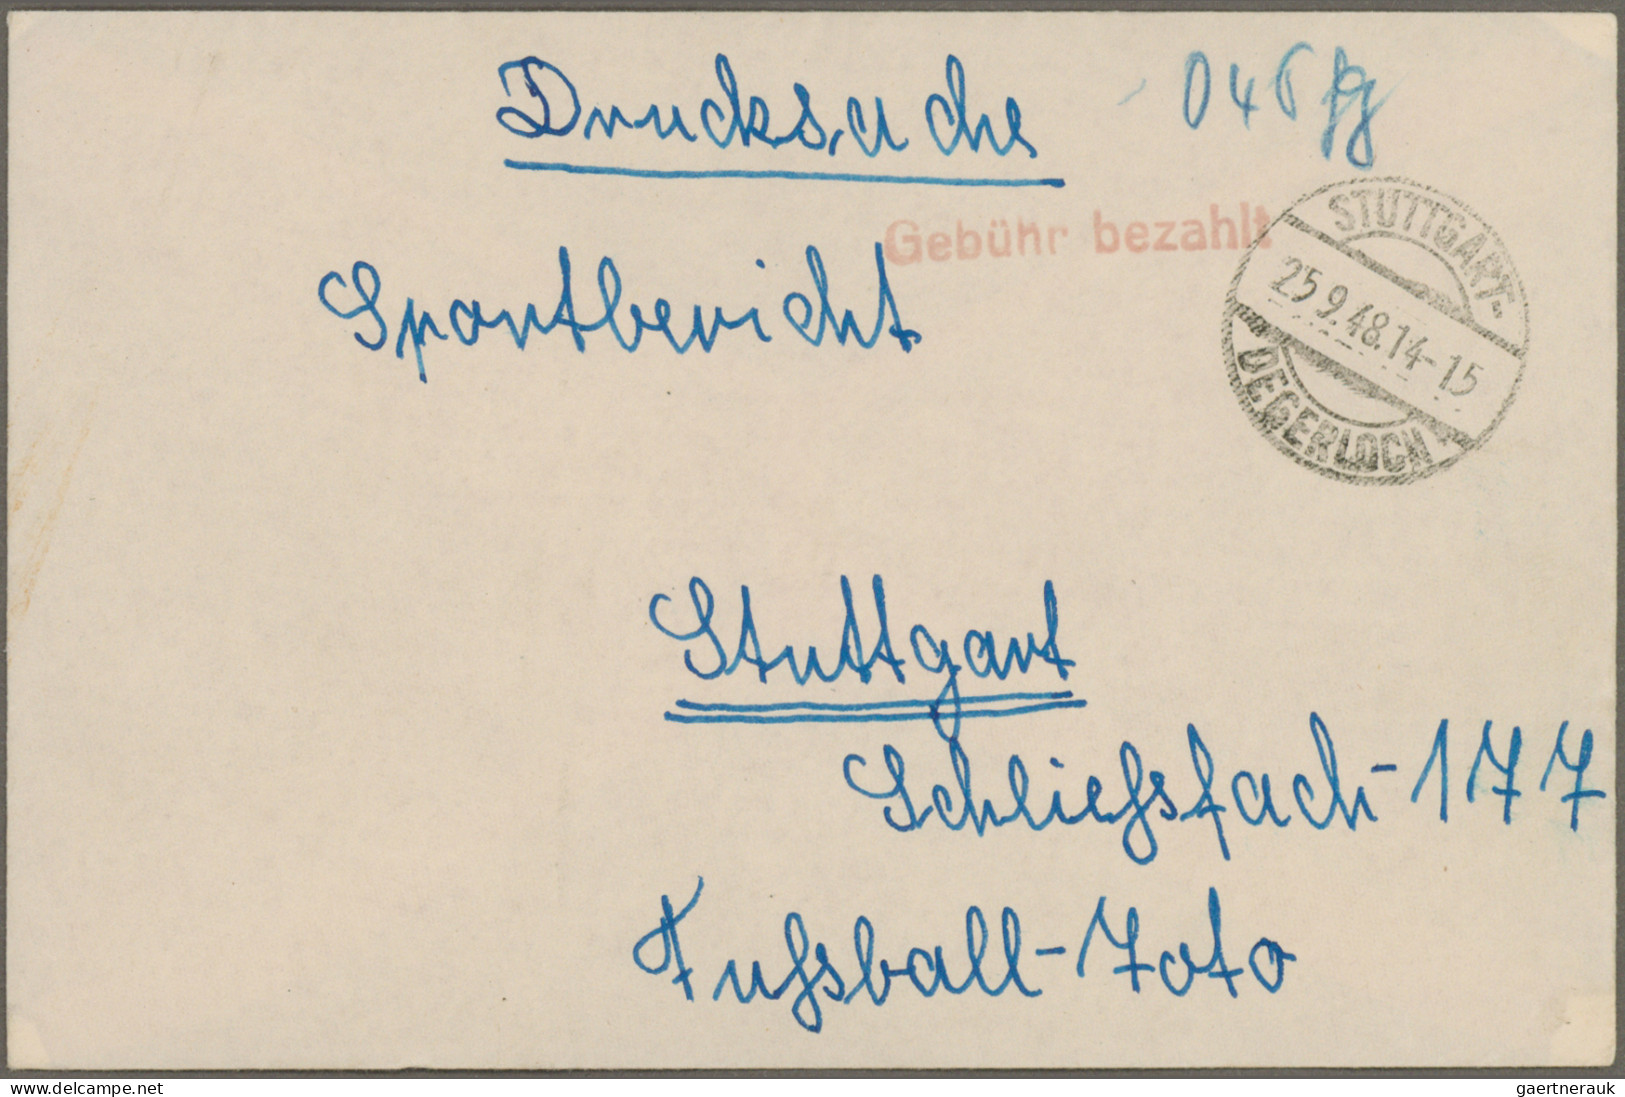 Drucksache
04 Pfg
Gebühr bezahlt
STUTTGART-
25.9.48.14-15
DEGERLOCH
Sportbericht
Stuttgart
Schließfach-177
Fußball-Toto
www.delcampe.net
gaertnerauk